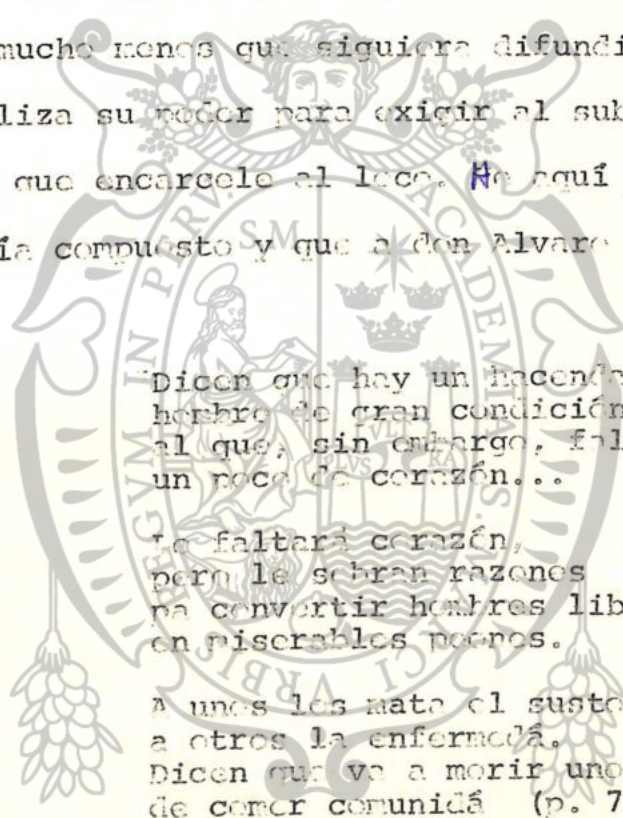 mucho menos que siguiera difundi
liza su poder para exigir al sub
que encarcele al loco. He aquí
ía compuesto y que a don Alvaro
"Dicen que hay un hacenda
hombre de gran condición
al que, sin embargo, fal
un poco de corazón...
Le faltará corazón,
pero le sobran razones
pa convertir hombres lib
en miserables peones.
A unos les mata el susto
a otros la enfermedá.
Dicen que va a morir uno
de comer comunidá (p. 7
S M
ACADEMIA
REGVM IN PERV
VRBIS
CIVI